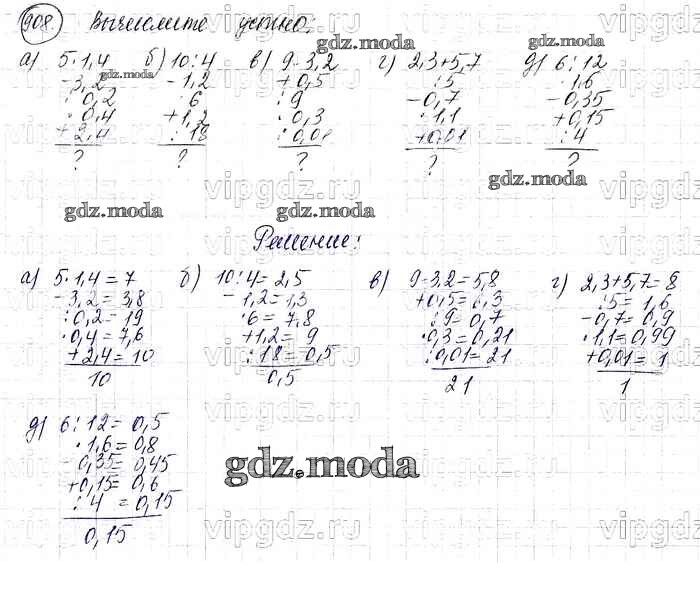 908. Вычислите устно:
а) 5·1,4 б) 10:4 в) 9-3,2 г) 2,3+5,7 д) 6:12
-3,2 -1,2 +0,5 :5 ·1,6
:0,2 ·6 :9 -0,7 -0,35
·0,4 +1,2 ·0,3 ·1,1 +0,15
+2,4 :18 :0,01 +0,01 :4
? ? ? ? ?
gdz.moda
gdz.moda
gdz.moda
gdz.moda
gdz.moda
Решение:
а) 5·1,4=7 б) 10:4=2,5 в) 9-3,2=5,8 г) 2,3+5,7=8
-3,2=3,8 -1,2=1,3 +0,5=6,3 :5=1,6
:0,2=19 ·6=7,8 :9=0,7 -0,7=0,9
·0,4=7,6 +1,2=9 ·0,3=0,21 ·1,1=0,99
+2,4=10 :18=0,5 :0,01=21 +0,01=1
10 0,5 21 1
д) 6:12=0,5
·1,6=0,8
0,35=0,45
+0,15=0,6
:4=0,15
0,15
gdz.moda
vipgdz.ru